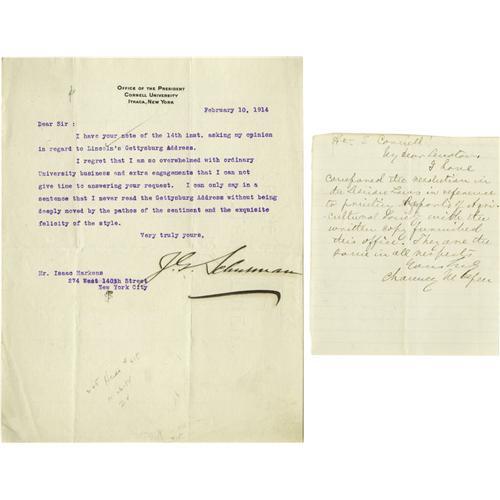 OFFICE OF THE PRESIDENT
CORNELL UNIVERSITY
ITHACA, NEW YORK
February 10, 1914
Dear Sir :
I have your note of the 14th inst. asking my opinion
in regard to Lincoln's Gettysburg Address.
I regret that I am so overwhelmed with ordinary
University business and extra engagements that I can not
give time to answering your request. I can only say in a
sentence that I never read the Gettysburg Address without being
deeply moved by the pathos of the sentiment and the exquisite
felicity of the style.
Very truly yours,
J. G. Schurman
Mr. Isaac Markens
274 West 140th Street
New York City
Hon E Cornell
My dear
I have
compared the resolution in
the Session Laws in reference
to printing Reports of Agri-
cultural Society with the
written copy furnished
this office. They are the
same in all respects
Yours truly
Chauncey M Depew